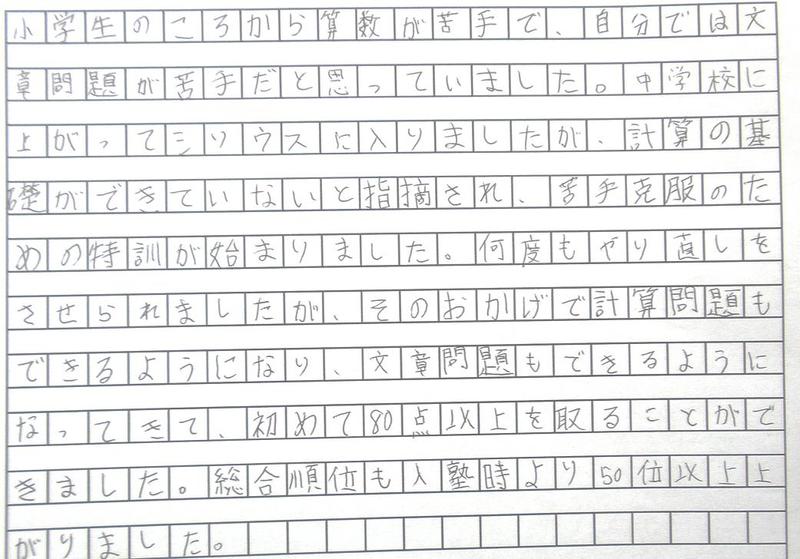 小学生のころから算数が苦手で、自分では文
章問題が苦手だと思っていました。中学校に
上がってシリウスに入りましたが、計算の基
礎ができていないと指摘され、苦手克服のた
めの特訓が始まりました。何度もやり直しを
させられましたが、そのおかげで計算問題も
できるようになり、文章問題もできるように
なってきて、初めて80点以上を取ることがで
きました。総合順位も入塾時より50位以上上
がりました。